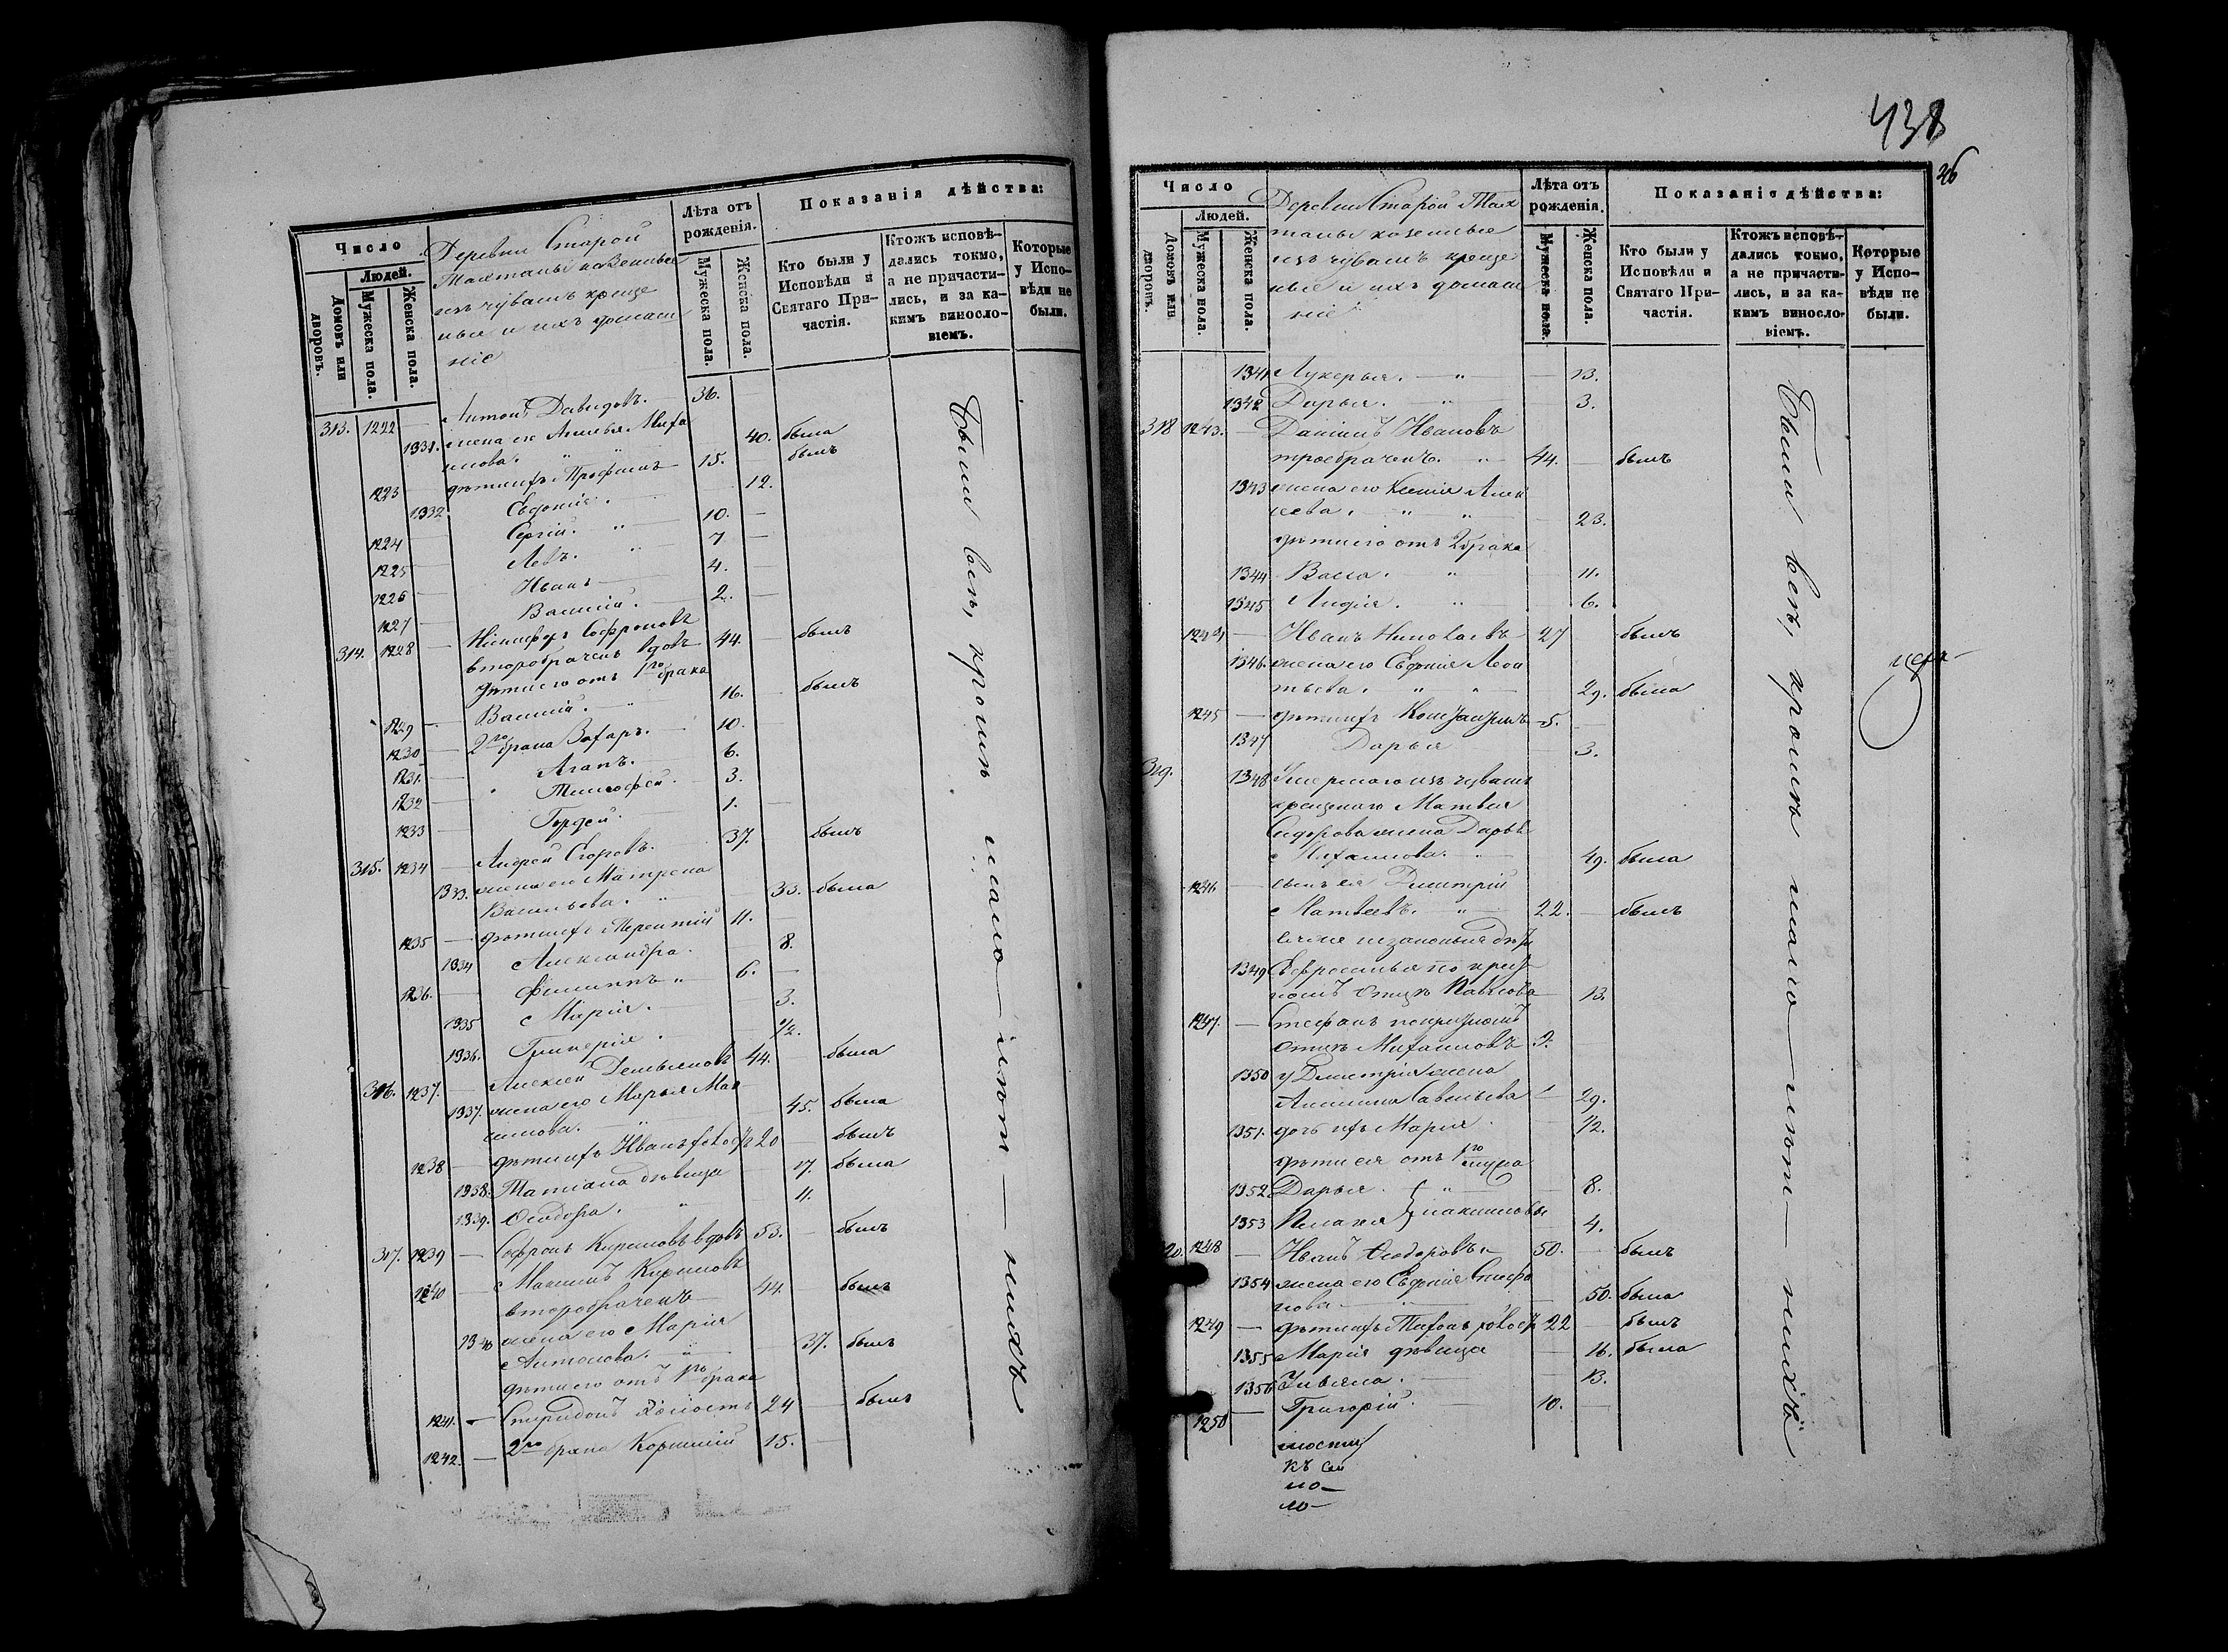 Число
Людей.
Домовъ или дворовъ.
Мужеска пола.
Женска пола.
Деревни Старой
Тахталы казенные
изъ чувашъ креще
ные и ихъ домаш
ніе
Лѣта отъ рожденія.
Мужеска пола.
Женска пола.
Показанія дѣйства:
Кто были у Исповѣди и Святаго При-частія.
Ктожъ исповѣ-дались токмо, а не причасти-лись, и за ка-кимъ винослo-віемъ.
Которые у Испо-вѣди не были.
313. 1222 — Антонъ Давидовъ. 36.
1331. жена его Анисья Миха
илова. 40. была
1223 — дѣти ихъ Трофимъ 15. былъ
1332 Евдокія. 12.
1224 Сергій. 10.
1225 Левъ. 7
1226 Иванъ 4.
1227 Василій. 2.
314. 1228 — Никифоръ Софроновъ
второбрачен. вдовъ 44. былъ
дѣти его отъ 1го брака
1229 — Василій. 16. былъ
1230 — 2го брака Захаръ. 10.
1231. Агапъ. 6.
1232 Тимофей. 3.
1233 Гордей. 1.
315. 1234 — Андрей Егоровъ. 37. былъ
1333. жена его Матрена
Васильева. 35. была
1235 — дѣти ихъ Терентій 11.
1334 Александра. 8.
1236. Филиппъ 6.
1335 Марія. 3.
1336. Гликерія. 1/2.
316. 1237. Алексей Демьяновъ 44. была
1337. жена его Марья Мак
симова. 45. была
1238 — дѣти ихъ Иванъ холостъ 20 былъ
1338. Татіана дѣвица 17. была
1339. Ѳеодора. 11.
317. 1239 — Софронъ Кириловъ вдовъ 53. былъ
1240 — Максимъ Кириловъ
второбраченъ 44. былъ
1340 жена его Марія
Антонова. 37. былъ
дѣти его отъ 1го брака
1241. — Спиридонъ холостъ 24 былъ
1242. — 2го брака Корнилій 15.
Были всѣ, кромѣ мало — лѣт — нихъ
438
26
Число
Людей.
Домовъ или дворовъ.
Мужеска пола.
Женска пола.
Деревни Старой Тах
талы казенные
изъ чувашъ креще
ные и ихъ домаш
ніе
Лѣта отъ рожденія.
Мужеска пола.
Женска пола.
Показанія дѣйства:
Кто были у Исповѣди и Святаго При-частія.
Ктожъ исповѣ-дались токмо, а не причасти-лись, и за ка-кимъ винослo-віемъ.
Которые у Испо-вѣди не были.
1341 Лукерья. 13.
1342 Дарья. 3.
318 1243. — Даніилъ Ивановъ
троебраченъ. 44. былъ
1343 жена его Ксенія Алек
сеева. 23.
дѣти его отъ 2 брака
1344 Васса. 11.
1345 Лидія. 6.
1244 — Иванъ Николаевъ 27 былъ
1346. жена его Евдокія Леон
тьева. 29. была
1245 — дѣти ихъ Константинъ 5.
1347 Дарья 3.
319. 1348 Умершаго изъ чувашъ
крещенаго Матвея
Сидорова жена Дарья
Михаилова. 49. была
1246 — сынъ ея Димитрій
Матвеевъ. 22. былъ
1349 Евфросинья по крест
номъ отцѣ Павлова 13.
1247. — Стефанъ по крестномъ
отцѣ Михаиловъ 9.
1350 у Димитрія жена
Акилина Савельева 29.
1351. дочь ихъ Марія 1/2.
дѣти ея отъ 1го мужа
1352 Дарья. 8.
1353 Пелагія Максимовы 4.
20. 1248 — Иванъ Ѳеодоровъ 50. былъ
1354 жена его Евдокія Стефа
нова 50. была
1249 — дѣти ихъ Тихонъ холостъ 22 былъ
1355 Марія дѣвица 16. была
1356 Ульяна. 13.
1250 — Григорій. 10.
Были всѣ, кромѣ мало — лѣт — нихъ
къ сей